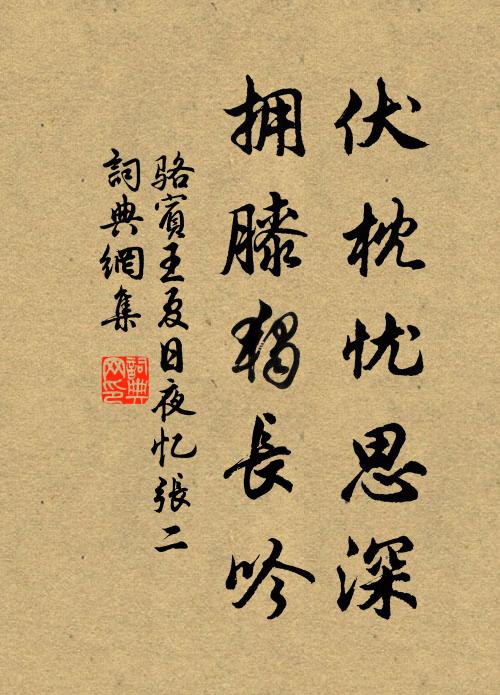 伏枕忧思深
拥膝獨長吟
骆賓王夏日夜忆張二
詞典網集
詞典网印